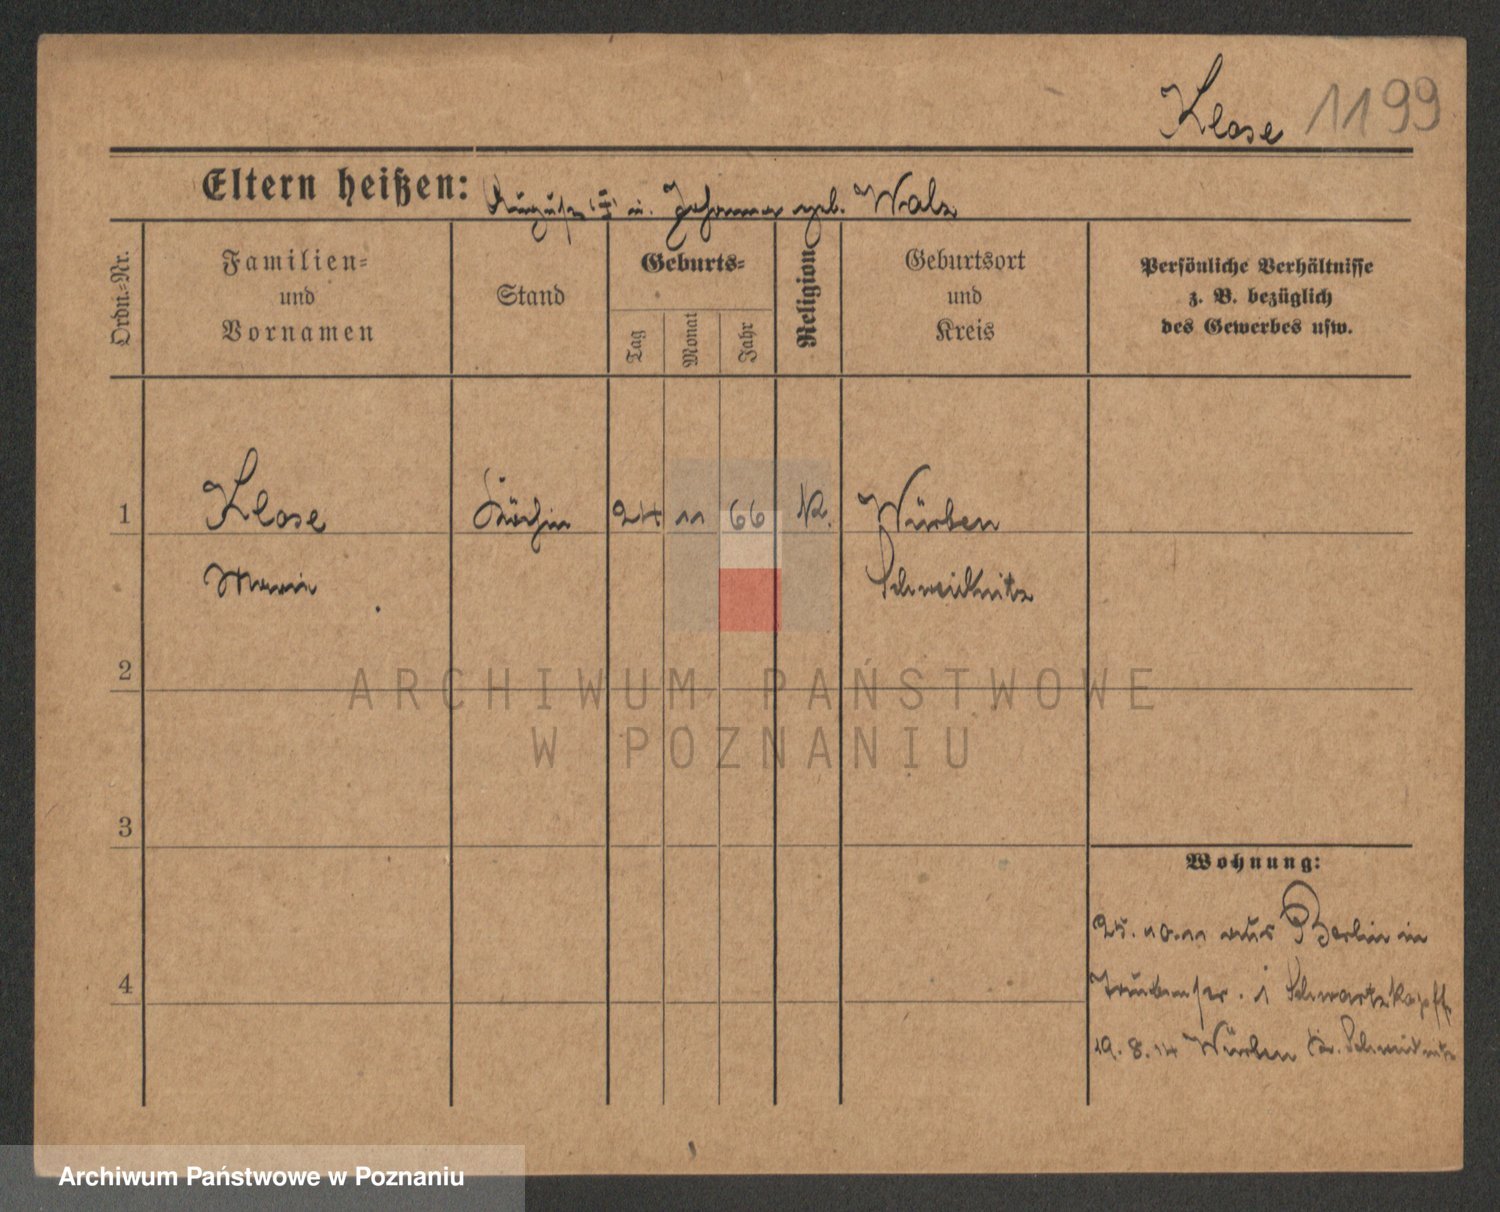 Klose 1199
Eltern heißen: August (†) u. Johanna geb. Walz
Ordn.-Nr.
Familien-
und
Vornamen
Stand
Geburts-
Tag
Monat
Jahr
Religion
Geburtsort
und
Kreis
Persönliche Verhältnisse
z. B. bezüglich
des Gewerbes usw.
1 Klose Köchin 24 11 66 K. Würben
Marie Schweidnitz
2
ARCHIWUM PAŃSTWOWE
W POZNANIU
3
4
Wohnung:
25. 10. 11 aus Berlin in
1 Schwartzkopff
19. 8. 14 Würben Kr. Schweidnitz
Archiwum Państwowe w Poznaniu